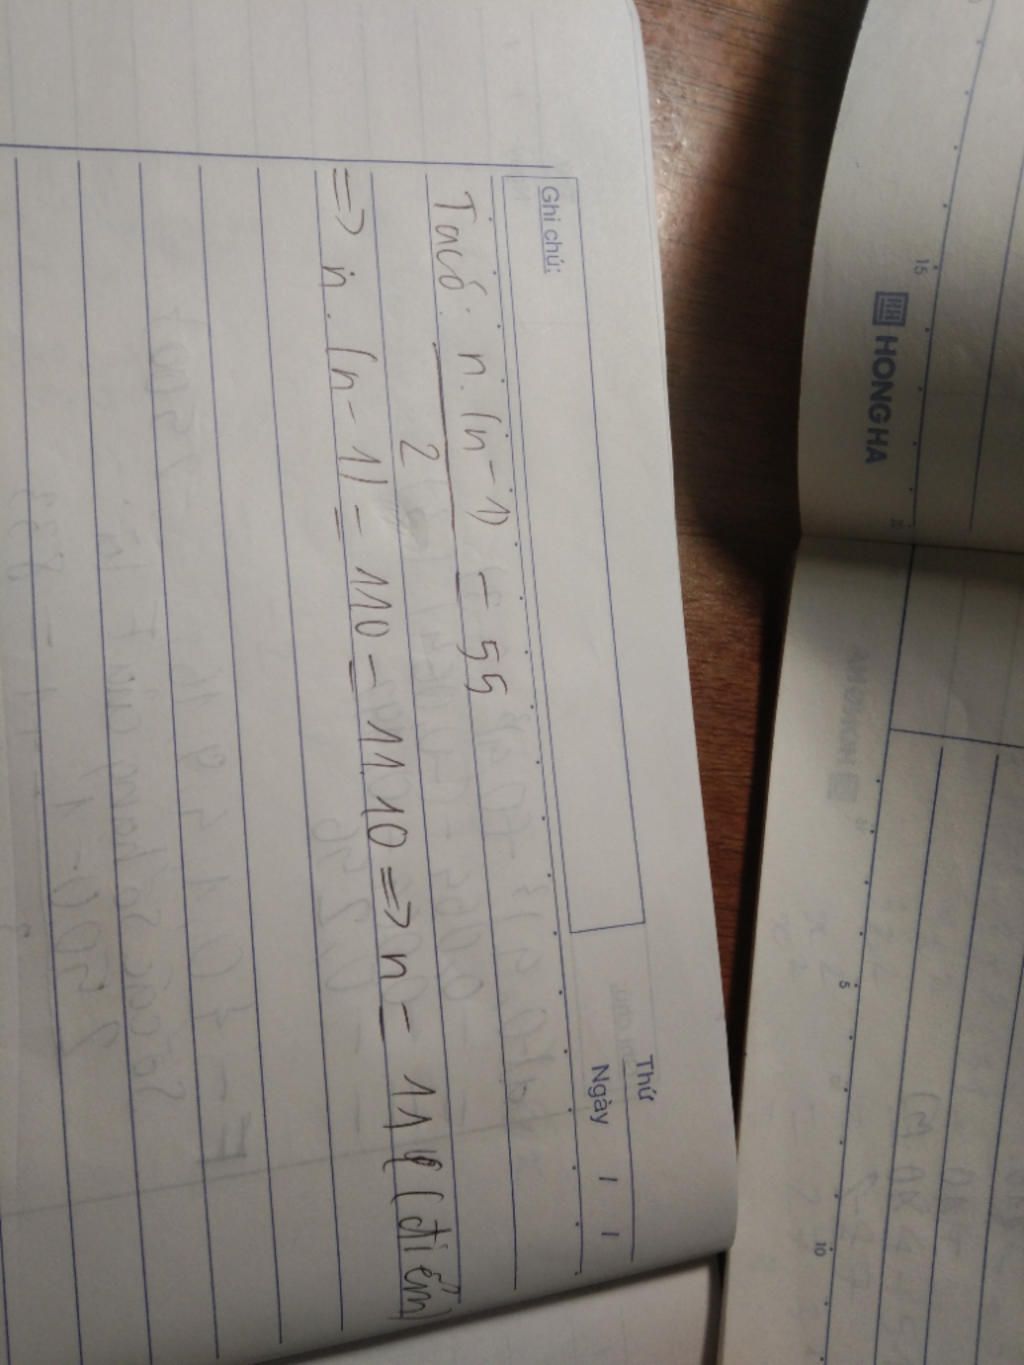 Thứ
Ngày / /
Ghi chú:
Ta có: n.(n-1) = 55
2
=> n.(n-1) = 110 = 11.10 => n = 11 (điểm)
15
HONG HA
5
10